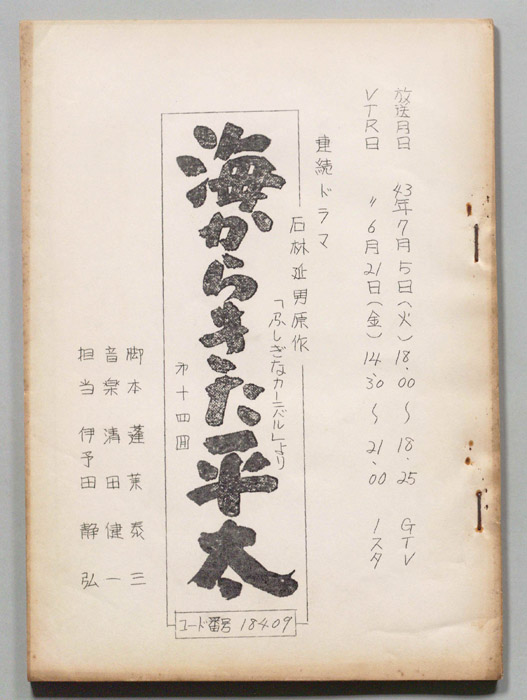 放送月日 43年7月5日(火) 18.00〜18.25 GTV
VTR日 〃6月21日(金) 14.30〜21.00 1スタ
連続ドラマ
石林延男原作
「ふしぎなカーニバル」より
海からきた平太
第十四回
脚本 蓬莱泰三
音楽 清田健一
担当 伊予田静弘
コード番号 18409